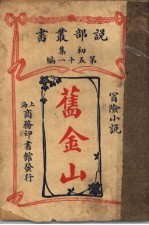 說部叢書
初集
第五十一編
冒險小說
舊金山
上海
商務印書館發行